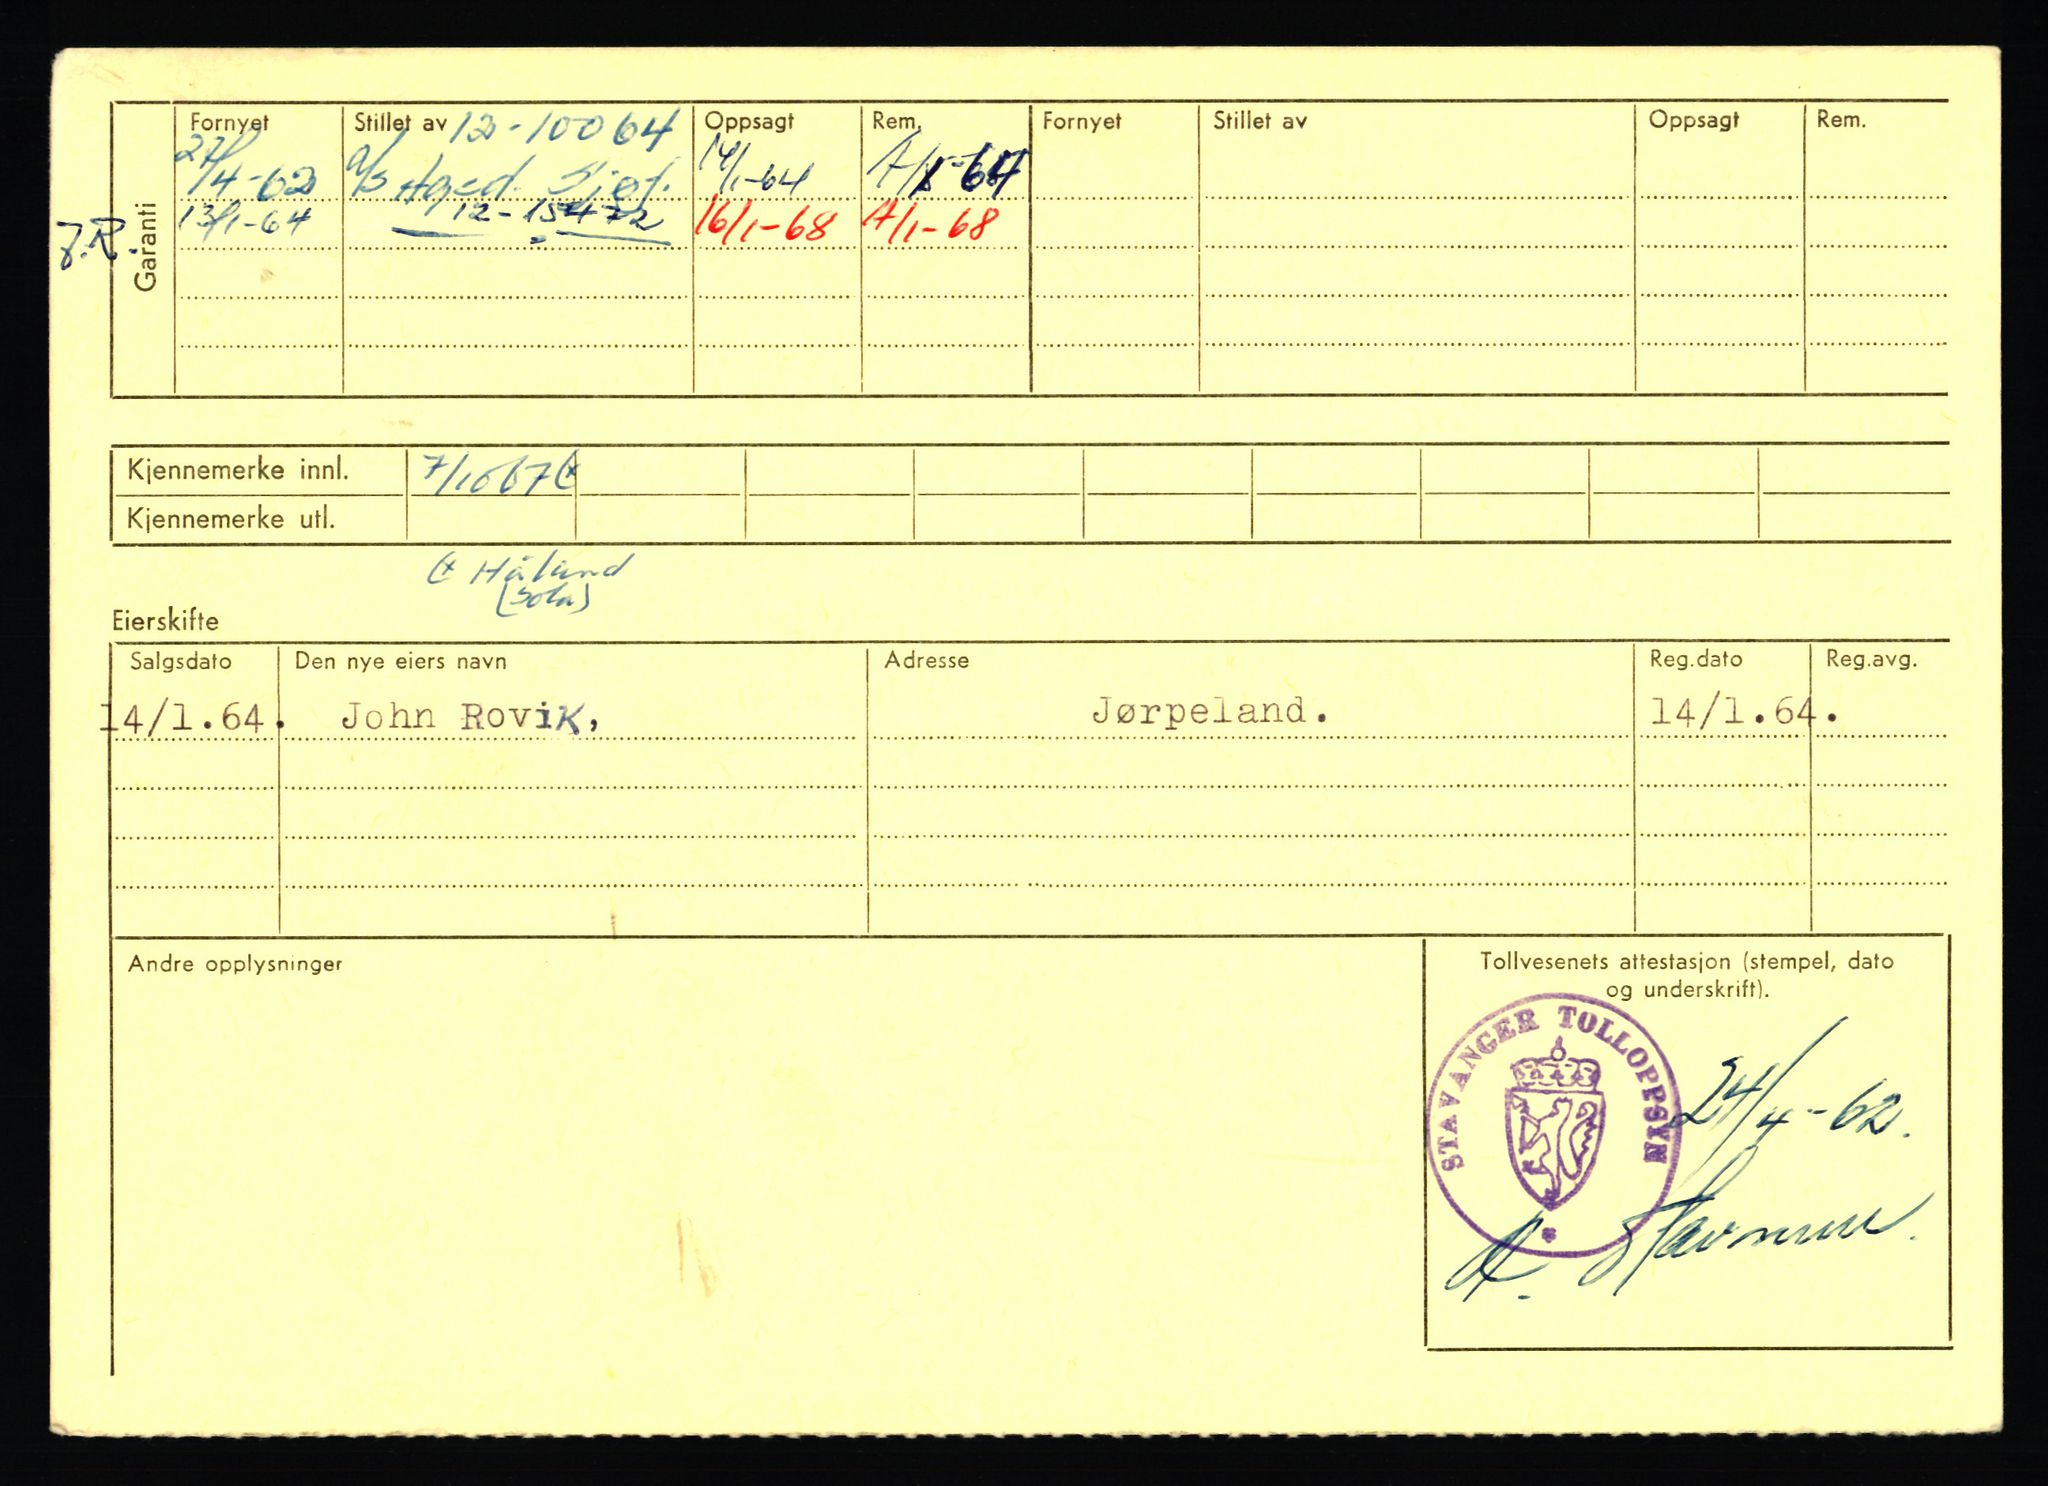 Garanti
J.R.
Fornyet Stillet av 12-10064 Oppsagt Rem. Fornyet Stillet av Oppsagt Rem.
27/4-62 A/S 14/1-64
13/1-64 12-15472 16/1-68 A/1-68
Kjennemerke innl. 7/10 67 (x
Kjennemerke utl.
(x Håland
(Sola)
Eierskifte
Salgsdato Den nye eiers navn Adresse Reg.dato Reg.avg.
14/1.64. John Rovik, Jørpeland. 14/1.64.
Andre opplysninger
Tollvesenets attestasjon (stempel, dato
og underskrift).
STAVANGER TOLLOPPSYN
24/4-62.